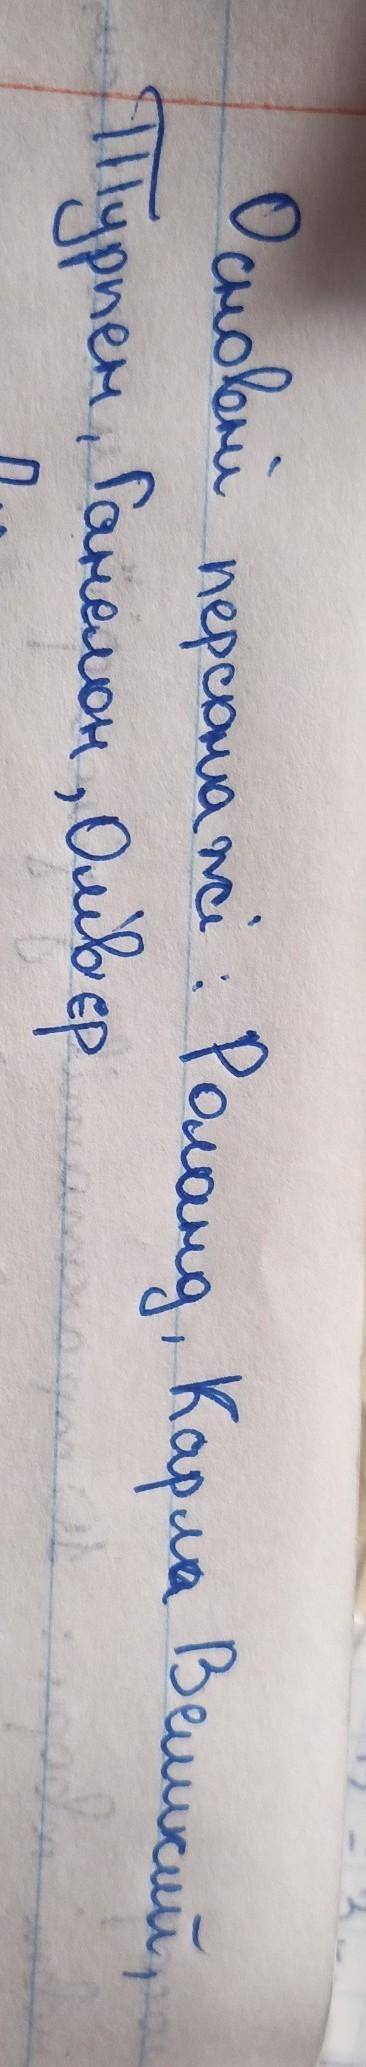 Основні персонажі: Роланд, Карла Великий,
Турпен, Ганелон, Олівєр